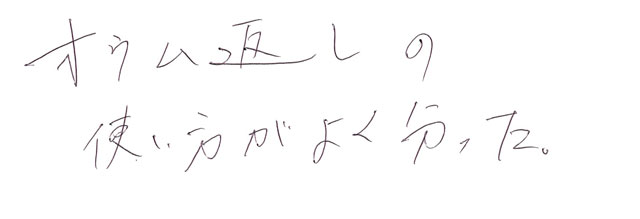 オウム返しの
使い方がよく分った。